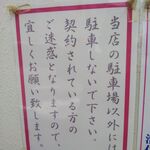 当店の駐車場以外には
駐車しないで下さい。
契約されている方の
ご迷惑となりますので、
宜しくお願い致します。